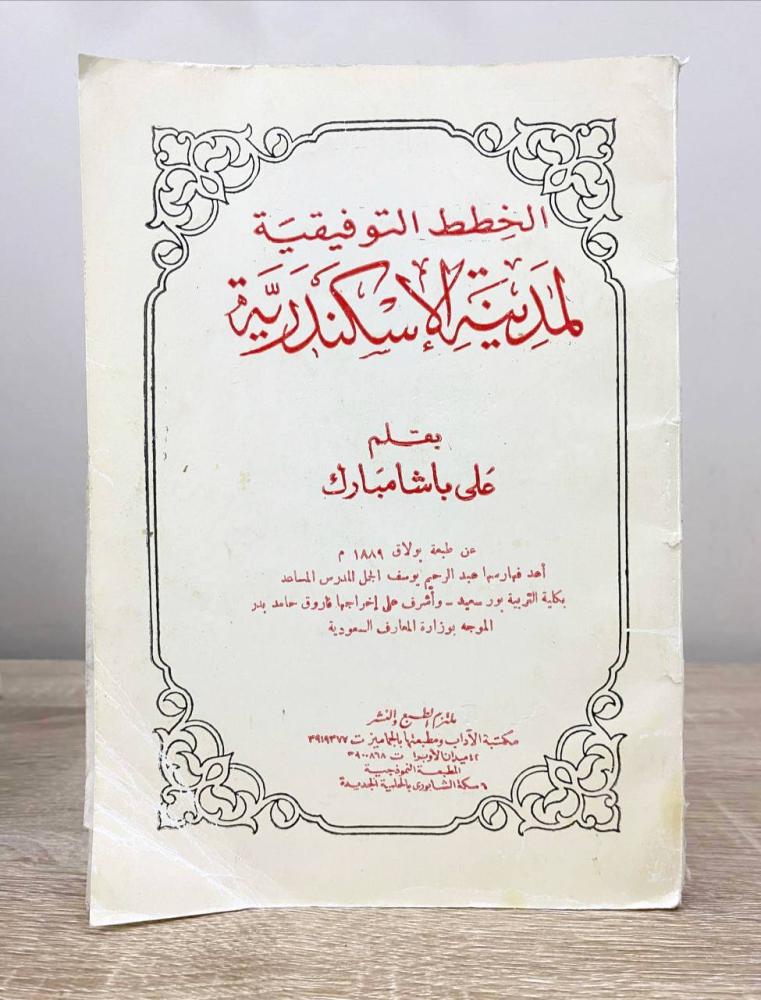 الخطط التوفيقية
لمَدِينَةِ الإِسْكَنْدَرِيَّة
بقلم
عَلى باشا مبَارك
عن طبعة بولاق ١٨٨٩ م
أعد فهارسها عبد الرحيم يوسف الجمل المدرس المساعد
بكلية التربية بور سعيد - وأشرف على إخراجها فاروق حامد بدر
الموجه بوزارة المعارف السعودية
ملتزم الطبع والنشر
مكتبة الآداب ومطبعتها بالجماميز ت ٣٩١٩٣٧٧
٤٢ ميدان الأوبرا ت ٣٩٠٠٨٦٨
المطبعة النموذجية
٦ سكة الشابورى بالحلمية الجديدة